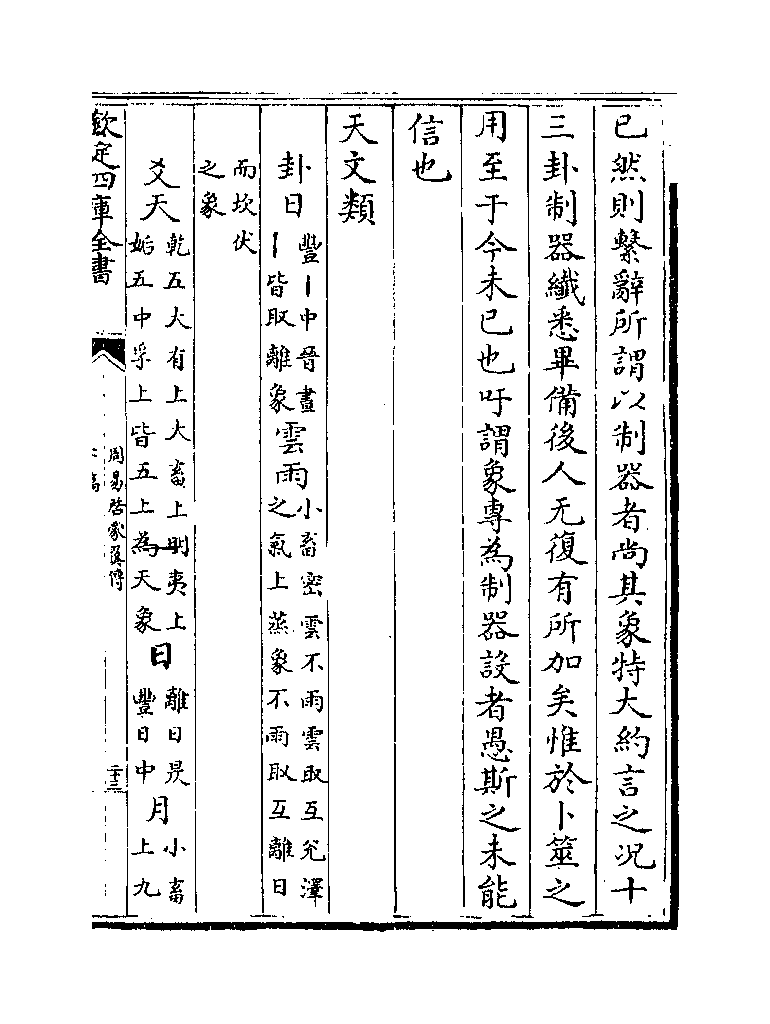 已然則繫辭所謂以制器者尚其象特大約言之况十
三卦制器纎悉畢備後人无復有所加矣惟於卜筮之
用至于今未已也吁謂象專為制器設者愚斯之未能
信也
天文類
卦日豐丨中晉晝丨皆取離象雲雨小畜密雲不雨雲取互兊澤之氣上蒸象不雨取互離日
而坎伏之象
爻天乾五大有上大畜上明夷上姤五中孚上皆五上為天象日離日昃豐日中月小畜上九
欽定四庫全書
周易啓蒙翼傳
二十三